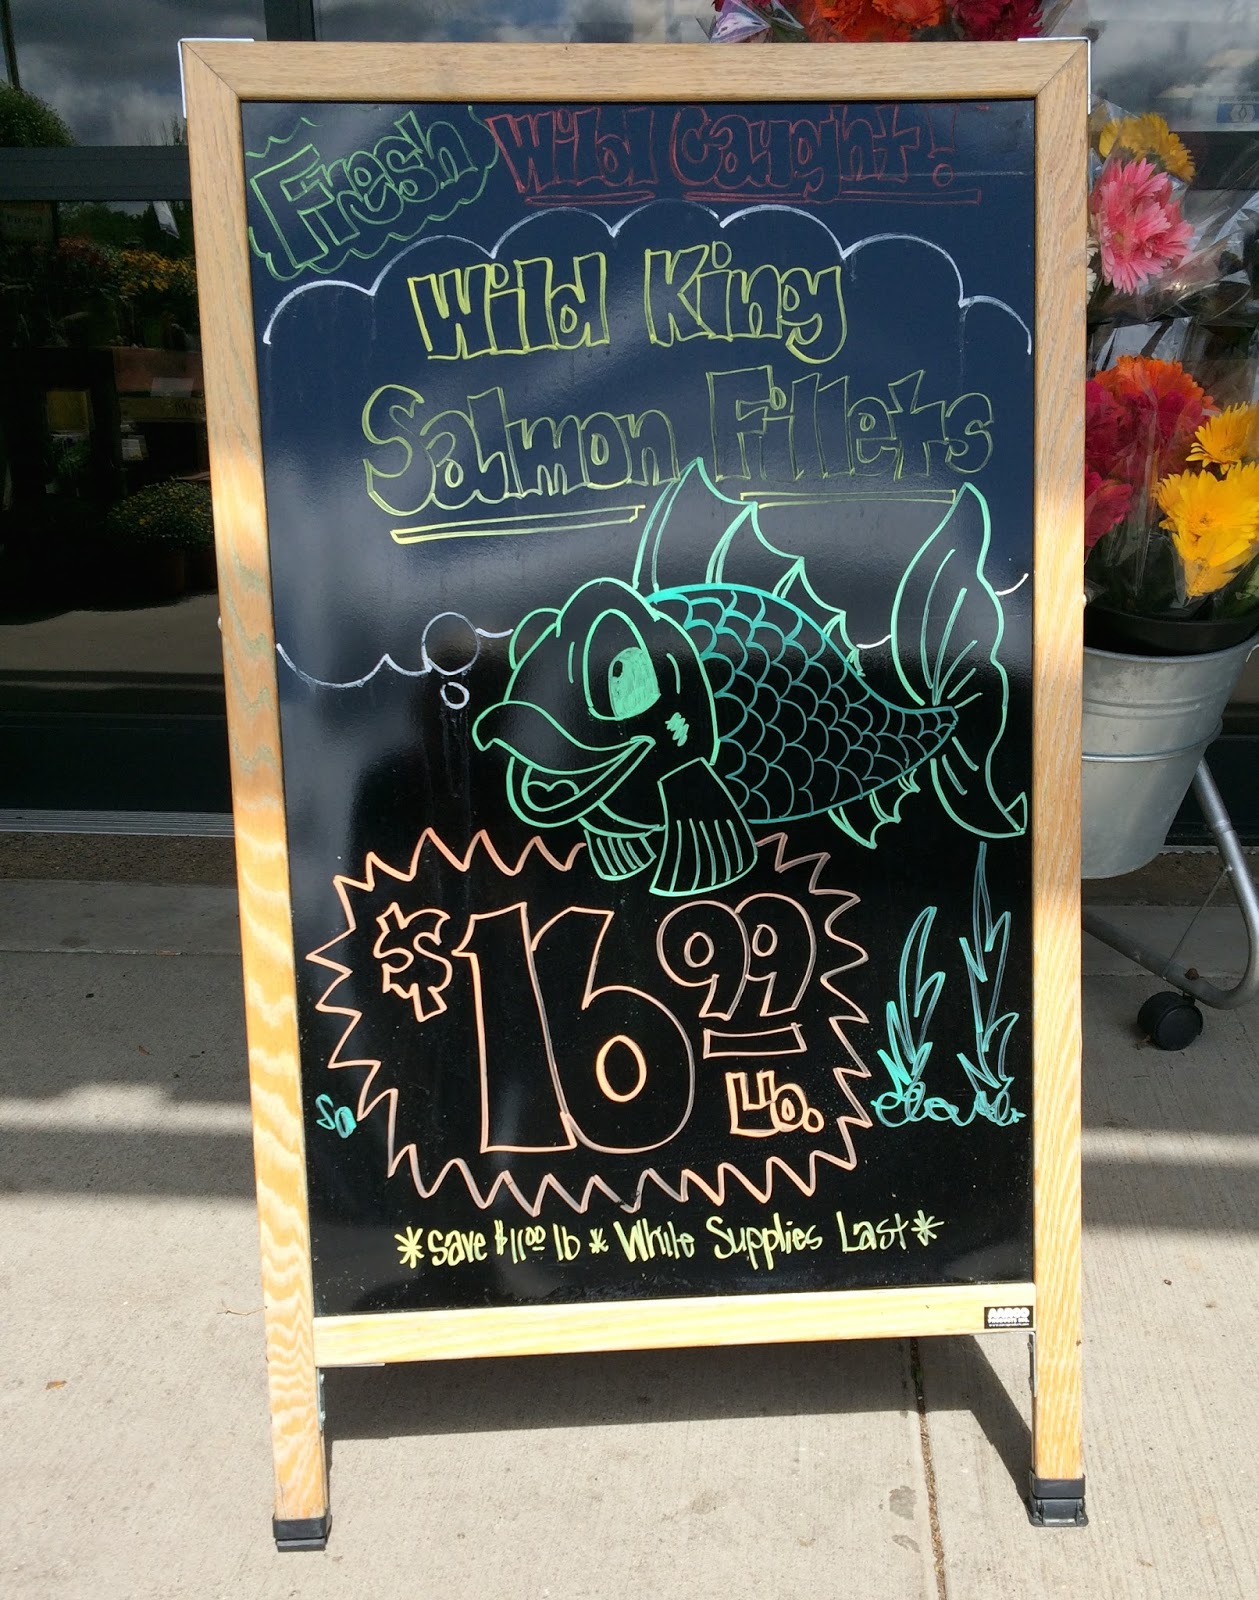 Fresh Wild Caught!
Wild King
Salmon Fillets
$16 99
Lb.
*Save $11 00 lb * While Supplies Last*
AARCO
PRODUCTS INC.